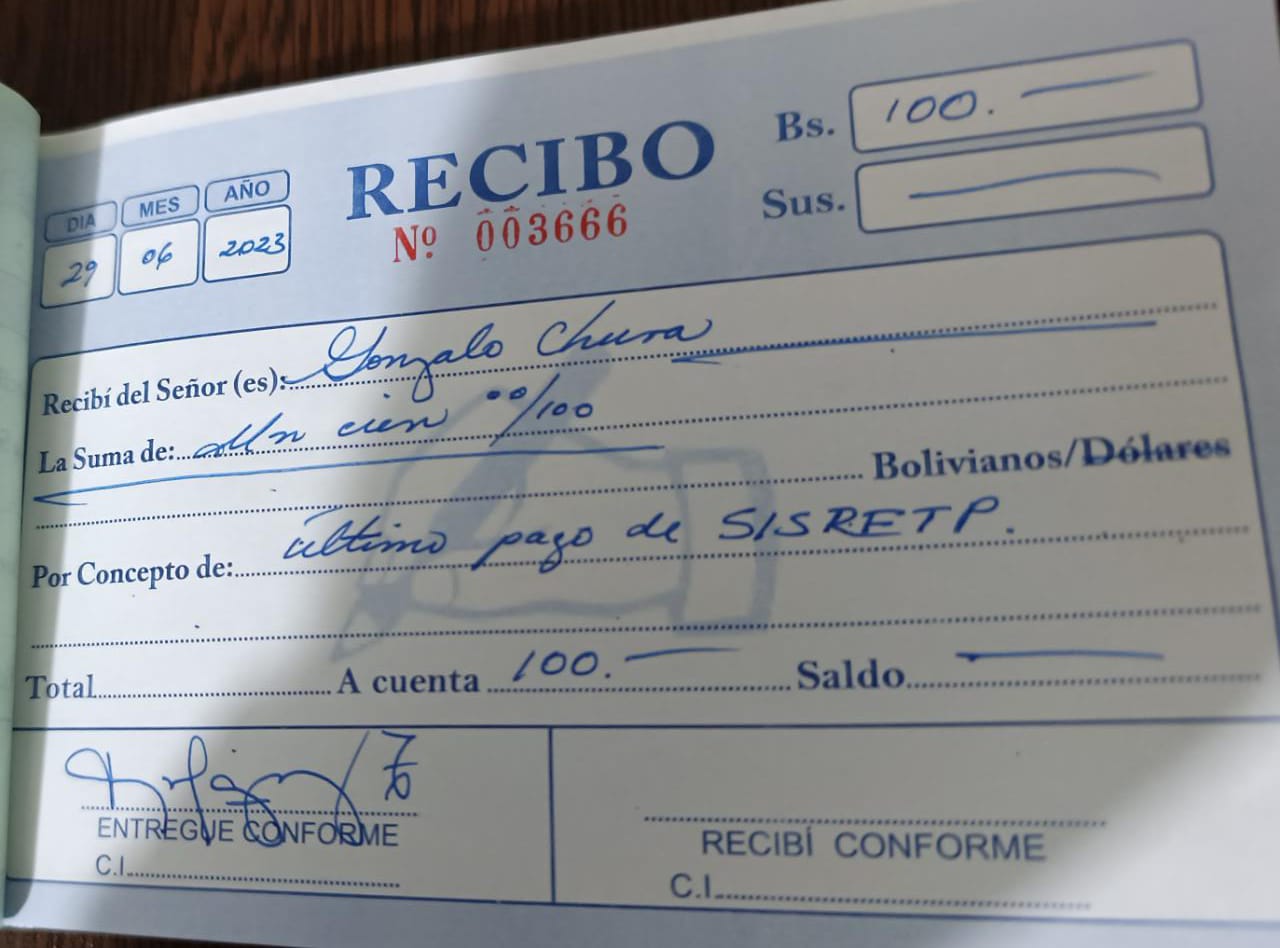 RECIBO
Nº 003666
Bs. 100.
Sus.
DIA MES AÑO
29 06 2023
Recibí del Señor (es): Gonzalo Chura
La Suma de: Un cien 00/100
Bolivianos/Dólares
Por Concepto de: último pago de SISRETP.
Total A cuenta 100. Saldo
ENTREGUE CONFORME
C.I.
RECIBÍ CONFORME
C.I.